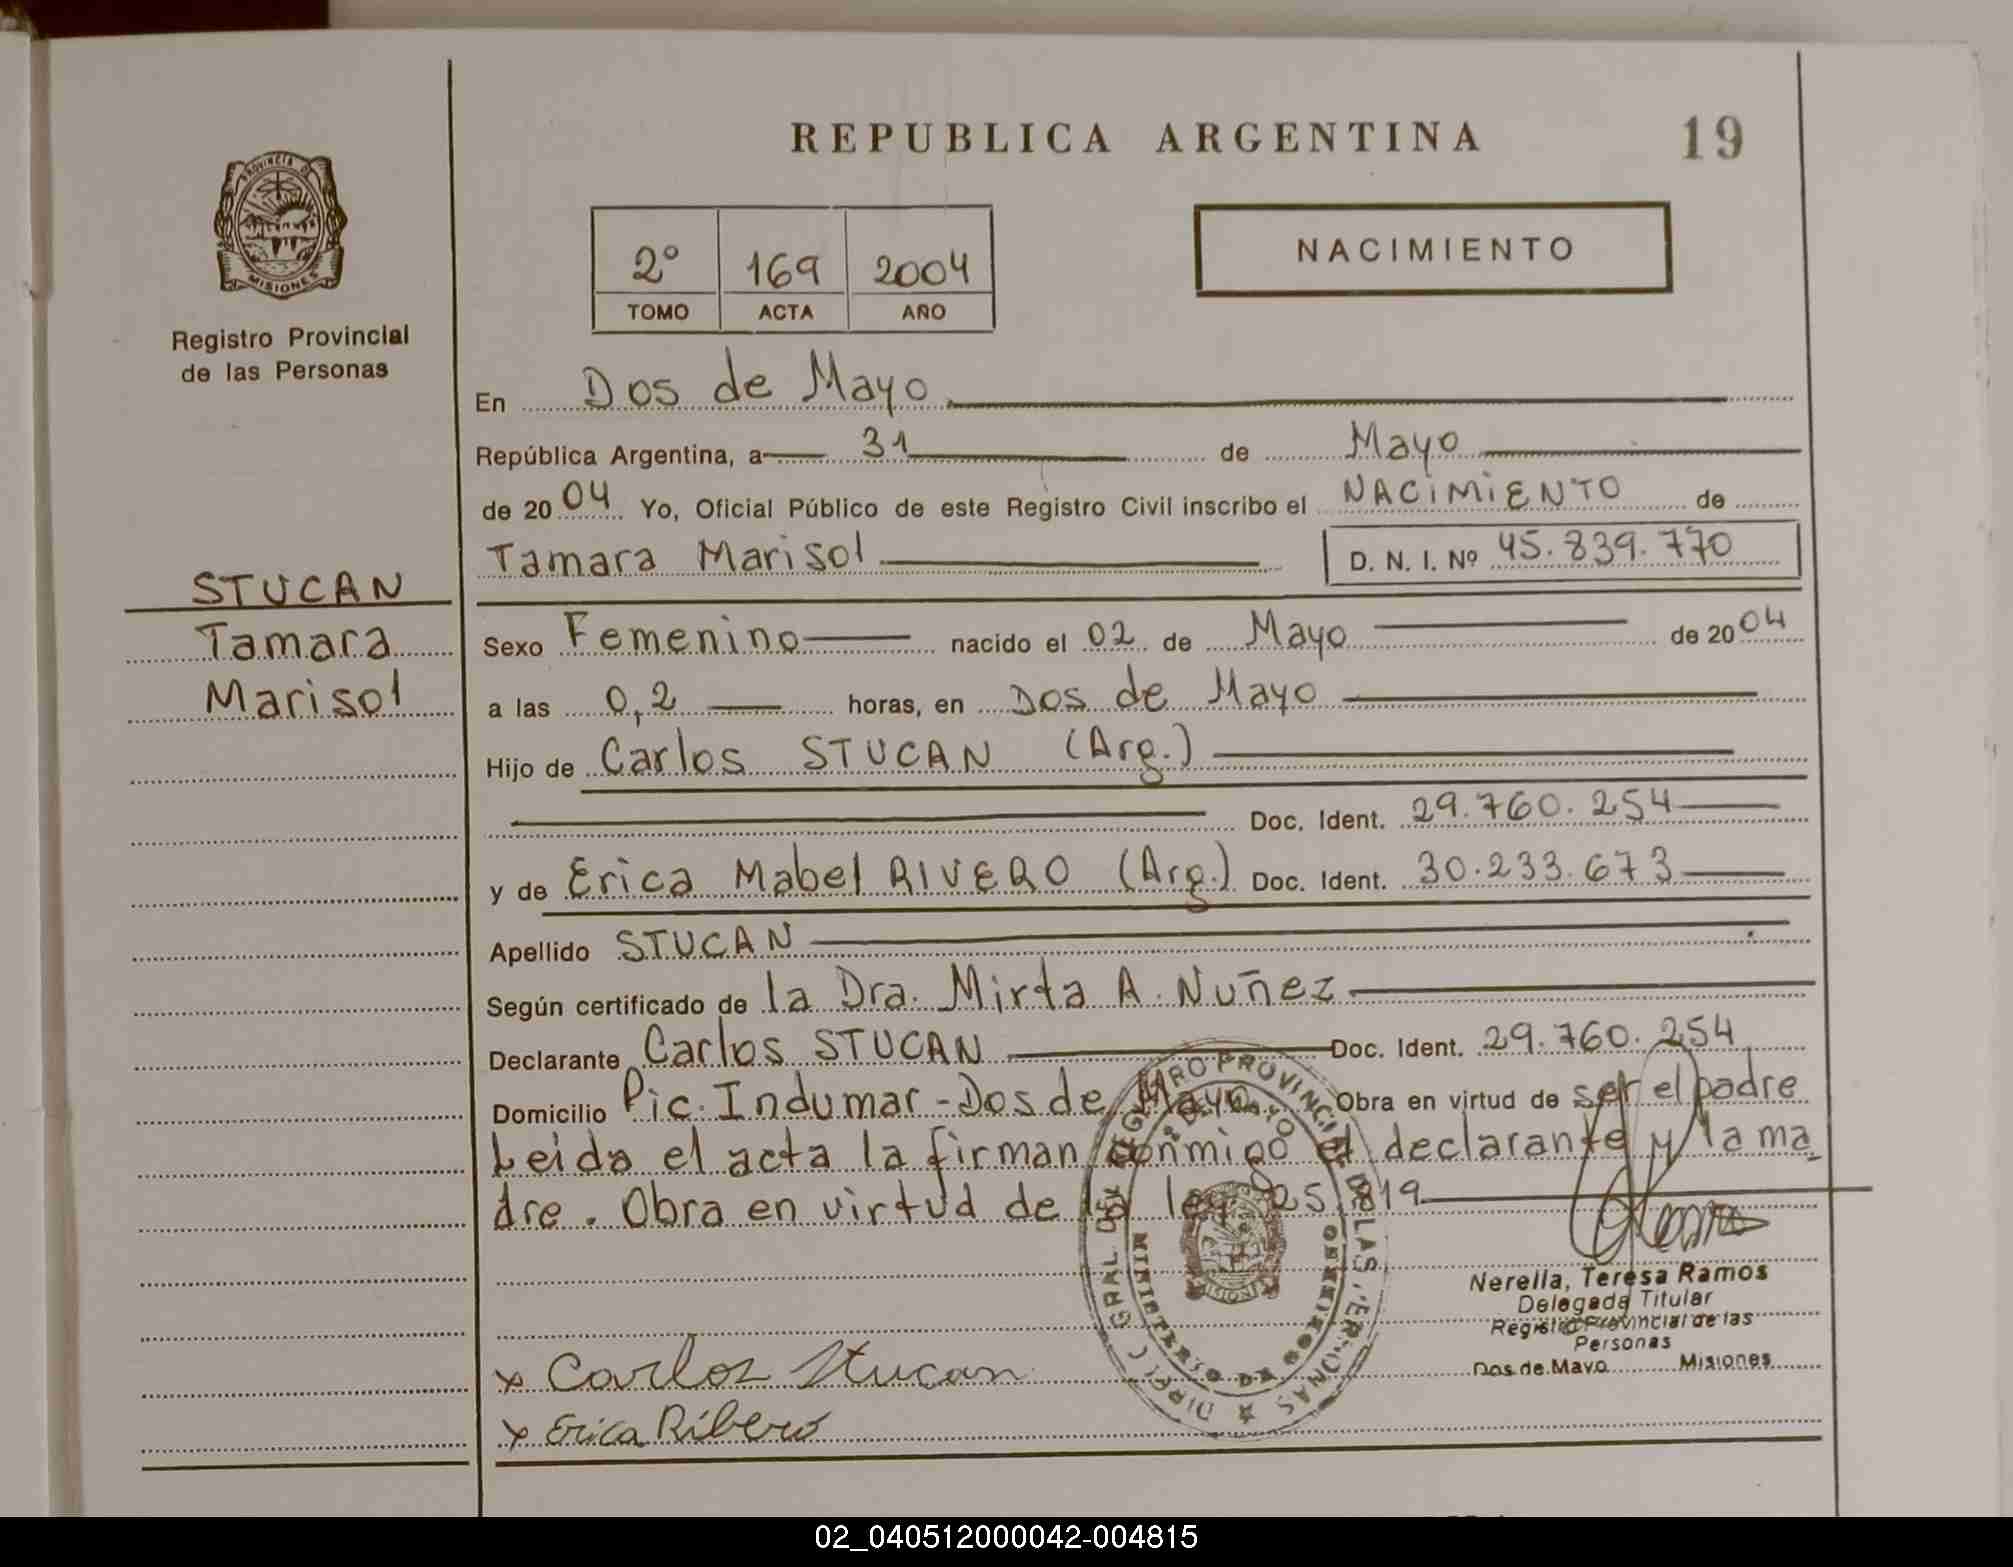 REPUBLICA ARGENTINA
19
PROVINCIA DE
MISIONES
Registro Provincial
de las Personas
2º 169 2004
TOMO ACTA AÑO
NACIMIENTO
En Dos de Mayo
República Argentina, a 31 de Mayo
de 2004 Yo, Oficial Público de este Registro Civil inscribo el NACIMIENTO de
Tamara Marisol D. N. I. Nº 45.839.770
STUCAN
Tamara
Marisol
Sexo Femenino nacido el 02 de Mayo de 2004
a las 0,2 horas, en Dos de Mayo
Hijo de Carlos STUCAN (Arg.)
Doc. Ident. 29.760.254
y de Erica Mabel RIVERO (Arg.) Doc. Ident. 30.233.673
Apellido STUCAN
Según certificado de la Dra. Mirta A. Nuñez
Declarante Carlos STUCAN Doc. Ident. 29.760.254
Domicilio Pic. Indumar - Dos de Mayo Obra en virtud de ser el padre
Leida el acta la firman conmigo el declarante y la ma_
dre. Obra en virtud de la ley 25.819
Nerella, Teresa Ramos
Delegada Titular
Registro Provincial de las
Personas
Dos de Mayo Misiones
x Carlos Stucan
x Erica Ribero
02_040512000042-004815